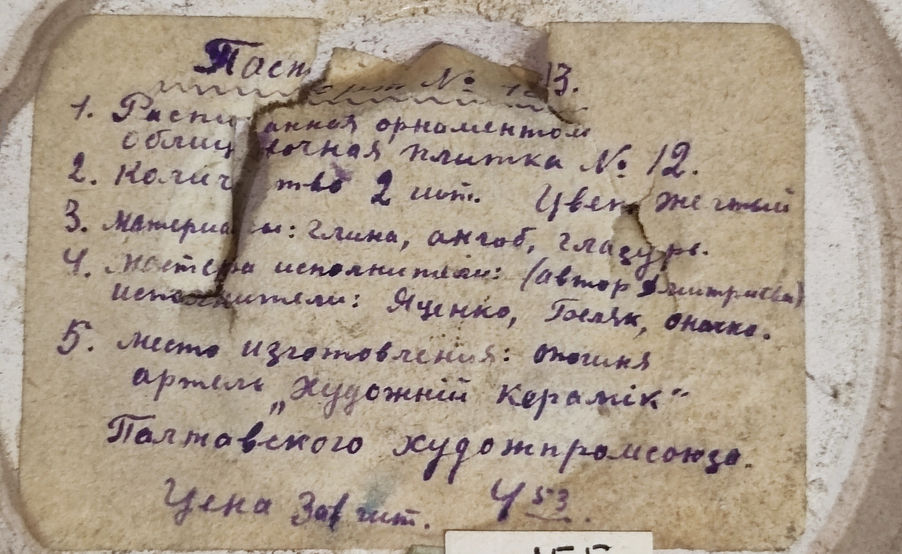 Паспорт № 13.
1. Расписанная орнаментом
облицовочная плитка № 12.
2. Количество 2 шт. Цвет желтый
3. Материалы: глина, ангоб, глазурь.
4. Мастера исполнители: (автор Дмитриева)
исполнители: Яценко,
5. Место изготовления: Опошня
артель „Художній керамік"
Полтавского художпромсоюза.
Цена за 1 шт. 4 53.